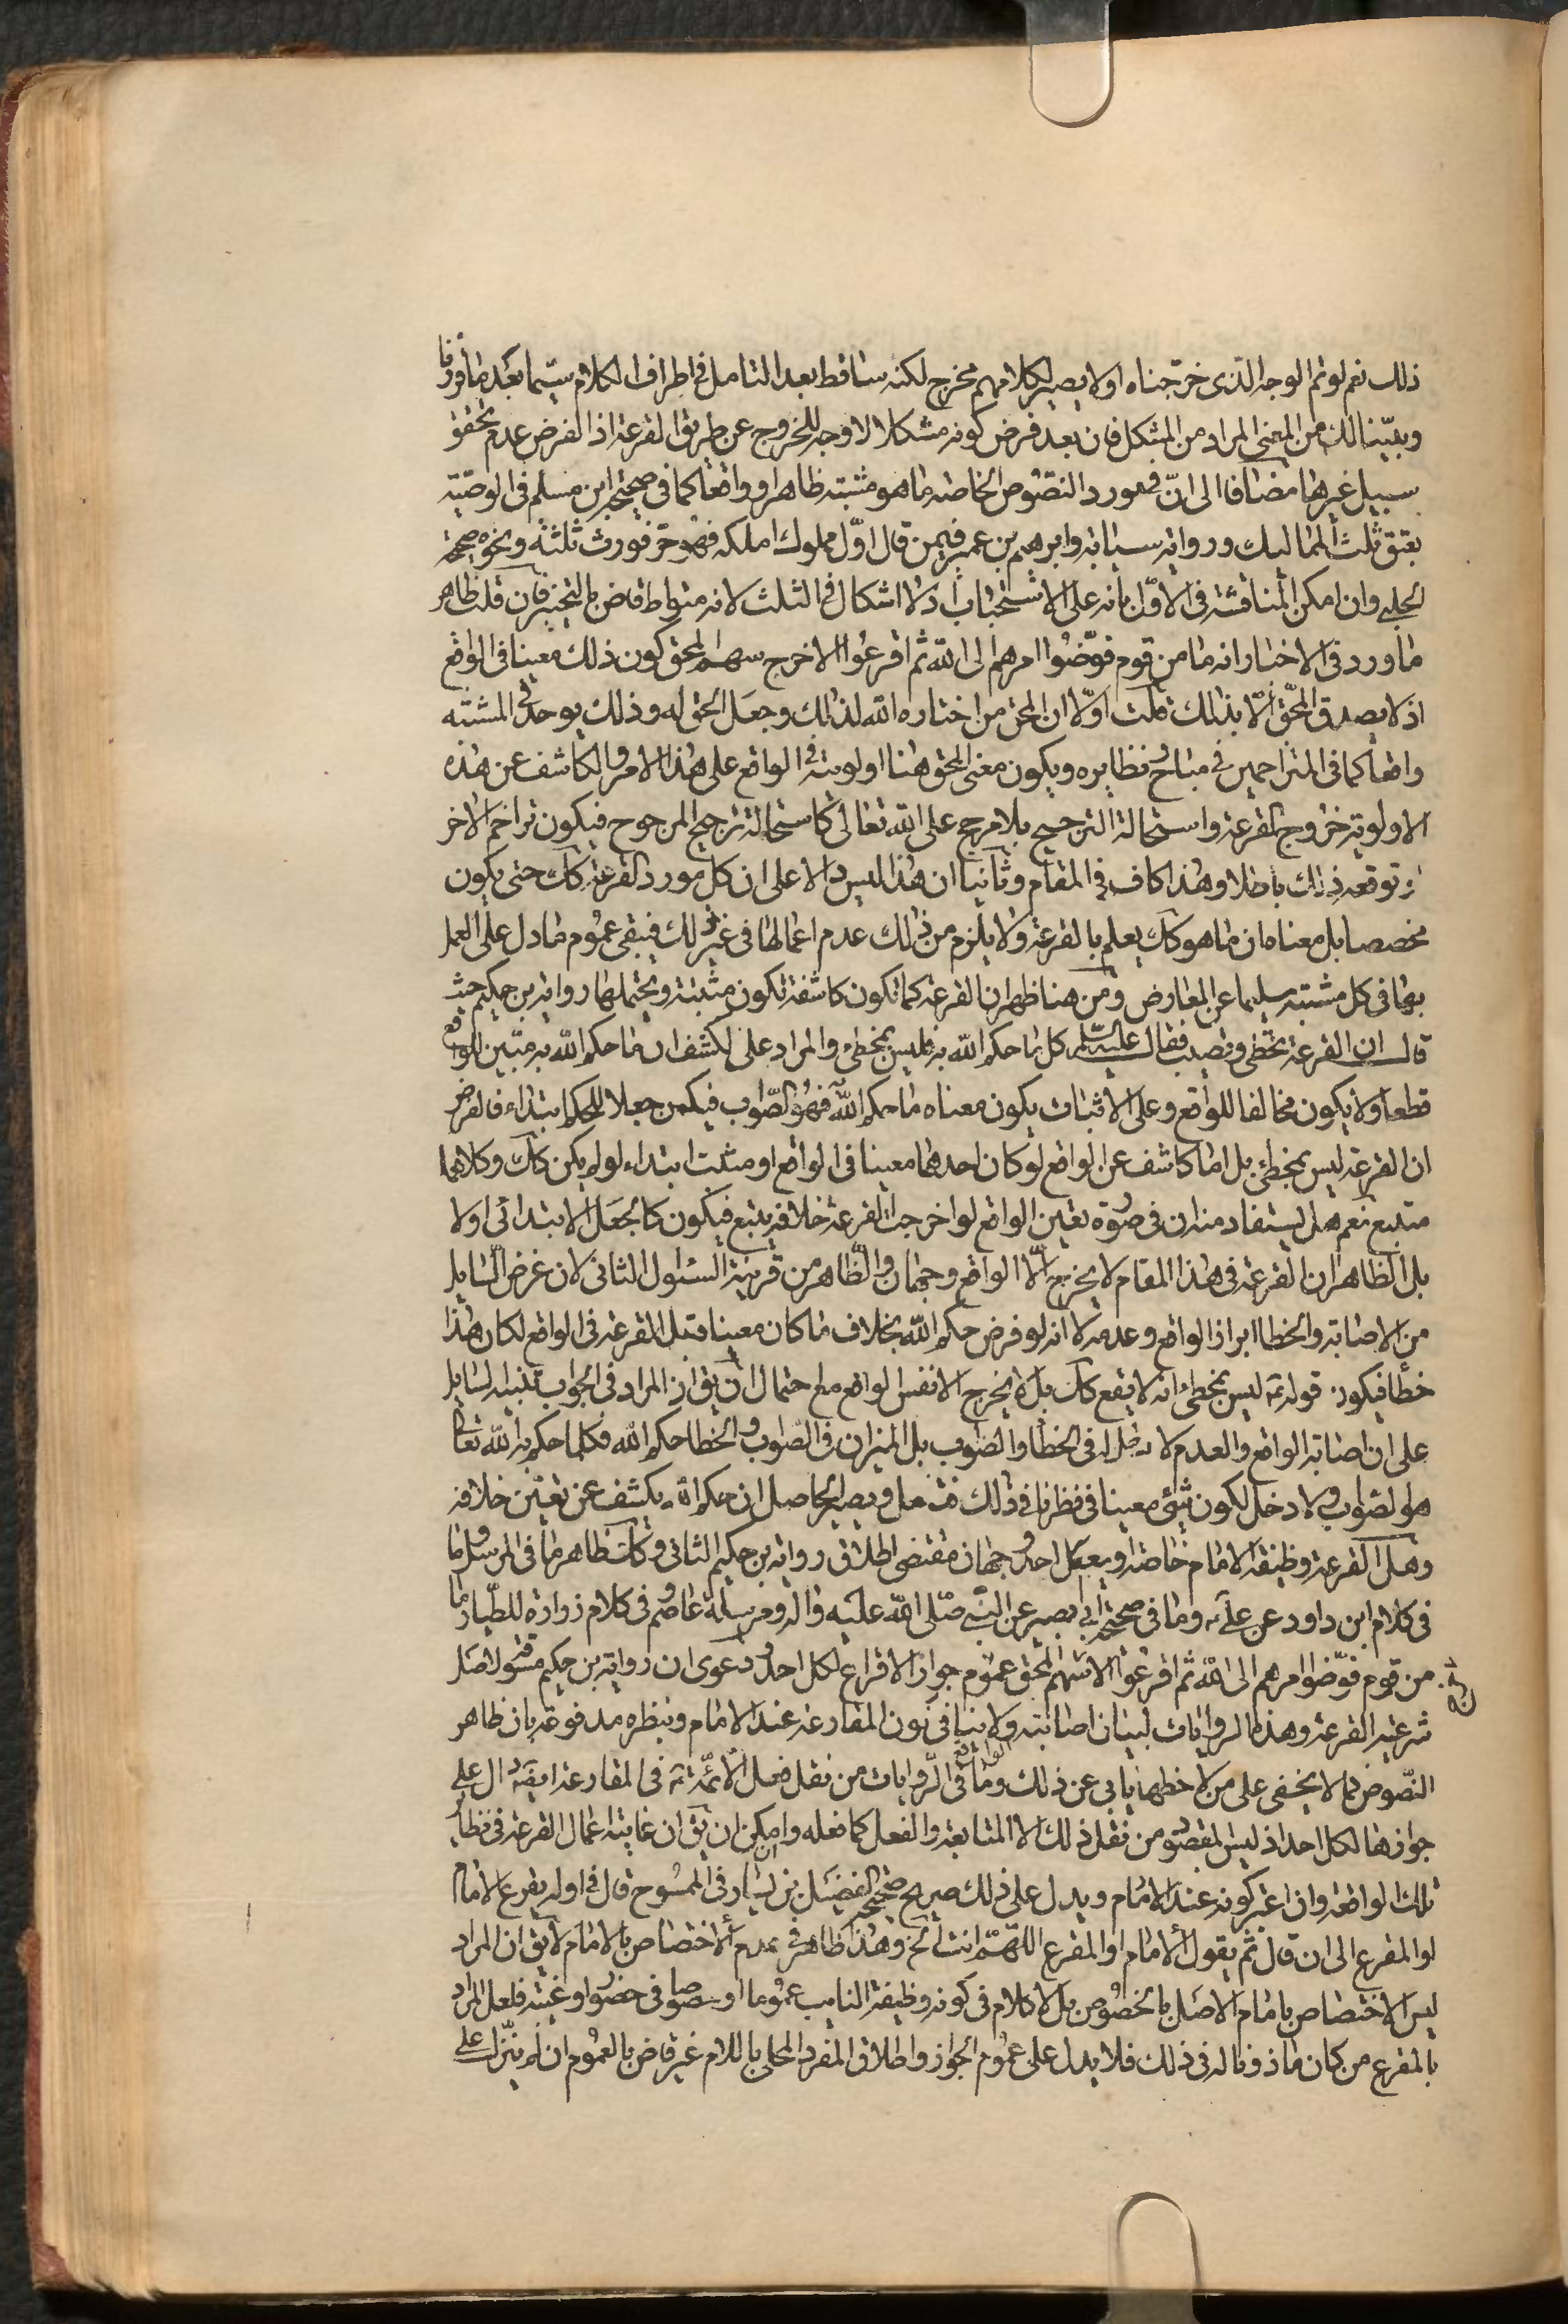 ذلك نعم لو تم الوجه الذى خرّجناه اولا يصير لكلامهم مخرج لكنه ساقط بعد التامل فى اطراف الكلام سيّما بعد ما قررنا
وبيّنا لك من المعنى المراد من المشكل فان بعد فرض كونه مشكلا لا وجه للخروج عن طريق القرعة اذ الفرض عدم تحقق
سبيل غيرها مضافا الى انّ فى مورد النصوص الخاصه ما هو مشتبه ظاهرا و واقعا كما فى صحيحة ابن مسلم فى الوصيّة
بعتق ثلث المماليك ورواية سيابة وابرهيم بن عمر فيمن قال اوّل مملوك املكه فهو حرّ فورث ثلثة ونحوه صحيحة
الحلبى وان امكن المناقشة فى الاوّل بانه على الاستحباب اذ لا اشكال فى الثلث لانه متواط قاض بالتخيير فان قلت ظاهر
ما ورد فى الاخبار انه ما من قوم فوّضوا امرهم الى الله ثم اقرعوا الا خرج سهم المحق كون ذلك معينا فى الواقع
اذ لا يصدق المحّق الّا بذلك قلت اوّلا ان المحق من اختاره الله لذلك وجعل الحق له وذلك يوجد فى المشتبه
واقعا كما فى المتزاحمين فى مباح ونظايره ويكون معنى المحق هنا اولويته فى الواقع على هذا الامر والكاشف عن هذه
الاولوية خروج القرعة واستحالة الترجيح بلا مرجح على الله تعالى كاستحالة ترجيح المرجوح فيكون تزاحم الاخر
او توقعه ذلك باطلا وهذا كاف فى المقام وثانيا ان هذا ليس دالا على ان كل مورد القرعة كك حتى يكون
مخصصا بل معناه ان ما هو كك يعلم بالقرعة ولا يلزم من ذلك عدم اعمالها فى غير ذلك فيبقى عموم ما دل على العمل
بها فى كل مشتبه سليما عن المعارض ومن هنا ظهر ان القرعة كما تكون كاشفة تكون مثبتة ويحتملهما رواية بن حكيم حيث
قال ان القرعة تخطى وتصيب فقال عليه السّلم كل ما حكم الله به فليس بمخطئ والمراد على الكشف ان ما حكم الله به مبيّن للواقع
قطعا ولا يكون مخالفا للواقع وعلى الاثبات يكون معناه ما حكم الله به فهو الصّواب فيكون جعلا للحكم ابتداء فالغرض
ان القرعة ليس بمخطئ بل اما كاشف عن الواقع لو كان احدهما معينا فى الواقع او مثبت ابتداء لو لم يكن كك وكلاهما
متبع نعم هل يستفاد منه ان فى صورة تعين الواقع لو اخرجت القرعة خلافه يتبع فيكون كالجعل الابتدائى اولا
بل الظاهر ان القرعة فى هذا المقام لا يخرج الّا الواقع وجهان والظّاهر من قرينة السئوال الثانى لان غرض السّايل
من الاصابة والخطا ابراز الواقع وعدمه لا انه لو فرض حكم الله بخلاف ما كان معينا قبل القرعة فى الواقع لكان هذا
خطأ فيكون قوله ع ليس بمخطئ انه لا يقع كك بل لا يخرج الا نفس الواقع مع احتمال ان يق ان المراد فى الجواب تنبيه السايل
على ان اصابة الواقع والعدم لا دخل له فى الخطأ والصواب بل الميزان فى الصّواب والخطا حكم الله فكلما حكم به الله تعالى
هو الصّواب ولا دخل لكون شئ معينا فى نظرنا فى ذلك فتامل ويصير الحاصل ان حكم الله يكشف عن تعيّن خلافه
وهل القرعة وظيفة الامام خاصة او يعم كل احد وجهان مقتضى اطلاق رواية بن حكيم الثانى وكك ظاهر ما فى المرسل وما
فى كلام ابن داود عن على ع وما فى صحيحة ابى بصير عن النّبى صلّى الله عليه واله ومرسلة عاصم وفى كلام زرارة للطّيار ما
من قوم فوّضوا امرهم الى الله ثم اقرعوا الا خرج سهم المحق عموم جواز الاقراع لكل احد ودعوى ان رواية بن حكيم مسوقة لاصل
شرعية القرعة وهذه الروايات لبيان اصابته ولا ينافى كون المقارعة عند الامام ونظره مدفوعة بان ظاهر
النّصوص كما لا يخفى على من لاحظها يابى عن ذلك وما فى الرّوايات من نقل فعل الائمّة ع فى المقارعة ايضا دال على
جوازها لكل احد اذ ليس المقصود من نقل ذلك الا المتابعة والفعل كما فعله وامكن ان يق ان غايته اعمال القرعة فى نظاير
تلك الواقعة وان اعتبر كونه عند الامام ويدل على ذلك صريح صحيحة الفضيل بن يسار فى الممسوح قال فى اوله يقرع الامام
او المقرع الى ان قال ثم يقول الامام او المقرع اللهمّ انت الخ وهذا ظاهر فى عدم الاختصاص بالامام لا يق ان المراد
ليس الاختصاص بامام الاصل بالخصوص بل لا كلام فى كونه وظيفة النايب عموما او خصوصا فى حضوره او غيبته فلعل المراد
بالمقرع من كان ماذونا له فى ذلك فلا يدل على عموم الجواز واطلاق المفرد المحلى باللام غير قاض بالعموم ان لم ينزّل على